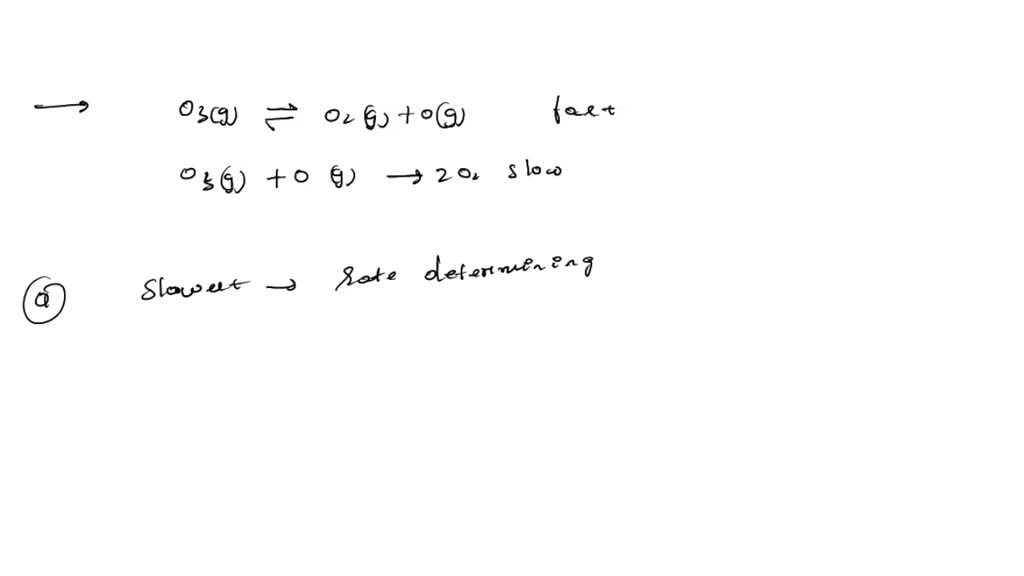 → O3(g) ⇌ O2(g) + O(g) fast
O3(g) + O(g) → 2O2 slow
(a) Slowest → Rate determining